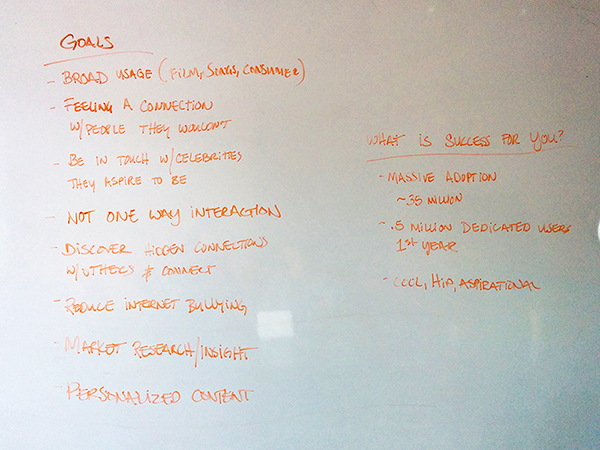 GOALS
- BROAD USAGE (FILM, SONGS, CONSUMER)
- FEELING A CONNECTION
W/PEOPLE THEY WOULDN'T
- BE IN TOUCH W/CELEBRITIES
THEY ASPIRE TO BE
- NOT ONE WAY INTERACTION
- DISCOVER HIDDEN CONNECTIONS
W/OTHERS & CONNECT
- REDUCE INTERNET BULLYING
- MARKET RESEARCH/INSIGHT
- PERSONALIZED CONTENT
WHAT IS SUCCESS FOR YOU?
- MASSIVE ADOPTION
~35 MILLION
- .5 MILLION DEDICATED USERS
1st YEAR
- COOL, HIP, ASPIRATIONAL